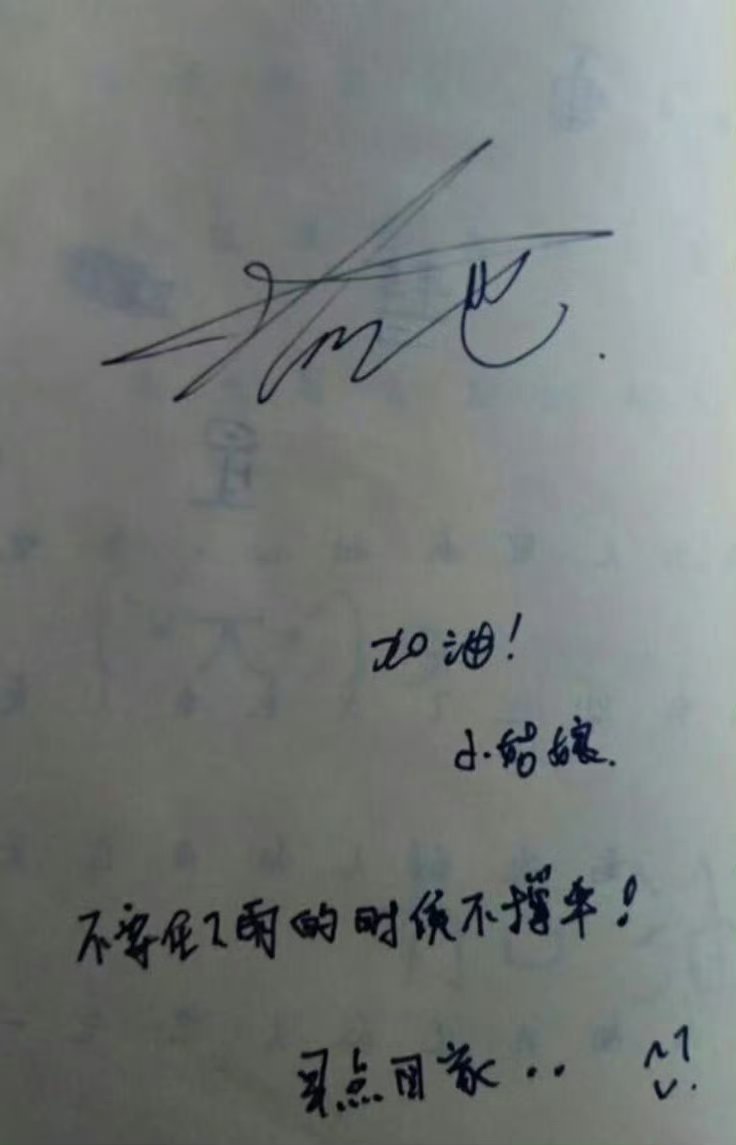 加油!
小姑娘.
不要在下雨的时候不撑伞!
早点回家..